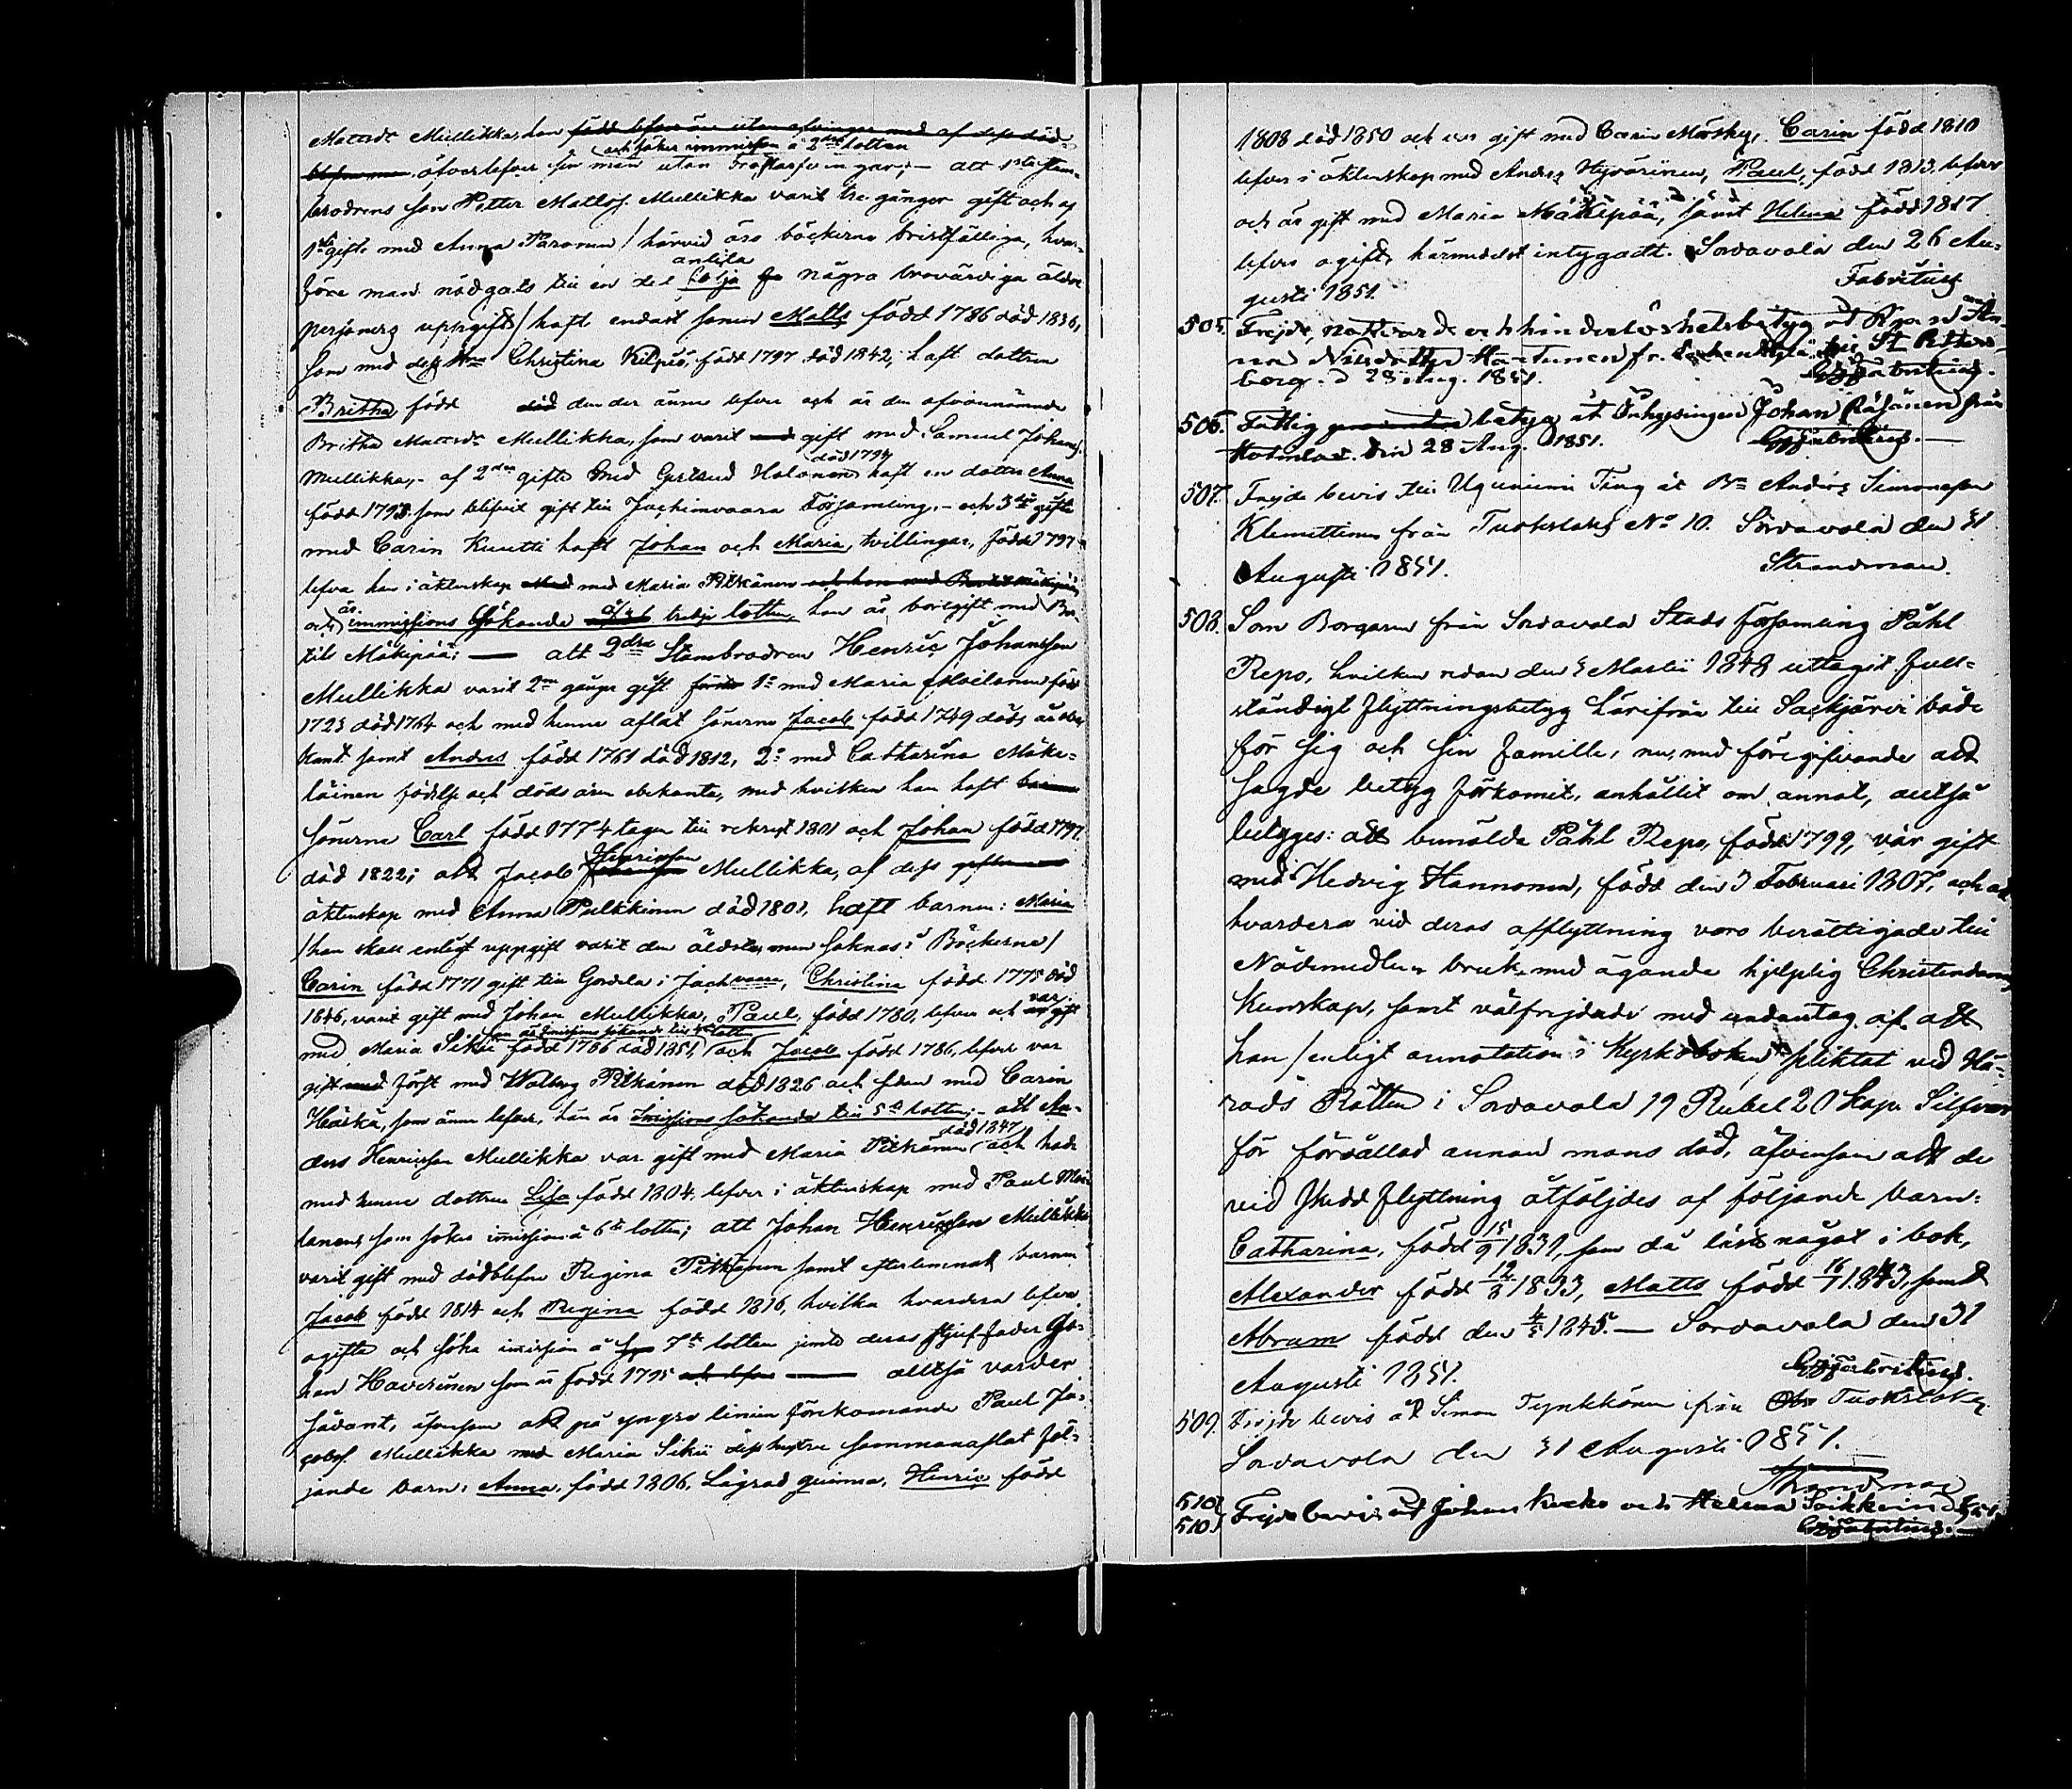 Mattsdr Mullikka, hon född lefver än utan
och söker immission å 2dra lotten
öfverlefver sin man utan bröstarfvingar; — att 1sta Stam-
brodrens son Petter Mattss. Mullikka varit tre gånger gift och af
1sta gifte med Anna Paronen / härvid äro böckerne bristfälliga, hvar-
anlita
före man nödgats till en del följa några trovärdiga äldre
personers uppgift / haft endast sonen Matts född 1786 död 1836,
som med dess Christina Kilpiö, född 1797 död 1842, haft dottren
Britha född död den der ännu lefver och är den ofvannämnde
Britha Mattsdr Mullikka, som varit med gift med Samuel Johans.
död 1794
Mullikka, - af 2dra gifte med Gertrud Halonen haft en dotter Anna
född 1793 som blifvit gift till Jachimvaara Församling. - och 3die gifte
med Carin Kuutti haft Johan och Maria, tvillingar, född 1797
lefva han i äktenskap med Maria Pitkänen och hon med
är
och immissions sökande tredje lotten, hon är bortgift med Ber-
tils Mäkipää; — att 2dra Stambrodren Henric Johansson
Mullikka varit 2ne gånger gift 1o med Maria Moilanen född
1723 död 1764 och med henne aflat sönerne Jacob född 1749 dödsår obe-
kant samt Anders född 1761 död 1812, 2o med Catharina Mäke-
läinen födelse och döds åren obekanta, med hvilken han haft barnen
sönerne Carl född 1774 tagen till rekryt 1801 och Johan född 1797.
Henricsson
död 1822; att Jacob Johansson Mullikka, af dess
äktenskap med Anna Pulkkinen död 1801, haft barnen: Maria
/ hon skall enligt uppgift varit den äldsta, men saknas i Böckerne /
Carin född 1771 gift till Gordela i Jachvaara, Christina född 1775 död
var
1846, varit gift med Johan Mullikka, Paul, född 1780, lefver och är gift
han är Imissions sökande till 4de lotten
med Maria Sikiö född 1786 död 1851, och Jacob född 1786, lefver var
gift med först med Walborg Pitkänen död 1826 och sedan med Carin
Härkä, som ännu lefver, han är Imissions sökande till 5te lotten; - att An-
död 1847
ders Henricsson Mullikka var gift med Maria Pitkänen och hade
med henne dottren Lisa född 1804. lefver i äktenskap med Paul Moi-
lanen, som söker imission å 6te lotten; att Johan Henricsson Mullikka
varit gift med dödblefne Regina Pitkänen samt efterlemnat barnen
Jacob född 1814 och Regina född 1816, hvilka hvardera lefva
ogifte och söka imission å 7de lotten jemte deras styf-fader Jo-
han Haverinen som är född 1795 och lefver alltså varder
sådant, äfvensom att på yngre linien förekomande Paul Ja-
cobs. Mullikka med Maria Sikiö dess hustru sammanaflat föl-
jande barn: Anna, född 1806, Lägrad quinna, Henric född
1808 död 1850 och var gift med Carin Mörsky, Carin född 1810
lefver i äktenskap med Anders Hyvärinen, Paul, född 1813. lefver
och är gift med Maria Mäkipää, samt Helena född 1817
lefver ogift, härmedelst intygadt. Sordavala den 26 Au-
gusti 1851. Fabritius
505. Frejde, nattvards och hinderlöshetsbetyg åt An-
na Nilsdotter Hartunen fr. till St Peters-
borg. d 28 Aug. 1851. Fabritius.
506. Fattig betyg åt Inhysingen Johan Räsänen från
den 28 Aug. 1851. Fabritius. —
507. Frejde bevis till Uguniemi Ting åt Bn Anders Simonsson
Klemettinen från Tuokslaks No 10. Sordavala den 31
Augusti 1851. Strandman.
508. Som Borgaren från Sordavala Stads församling Påhl
Repo, hvilken redan den 5 Martii 1848 uttagit full-
ständigt flyttningsbetyg härifrån till Säckjärvi både
för sig och sin famille, nu, med föregifvande att
sagde betyg förkomit, anhållit om annat, alltså
betyges: att bemälde Påhl Repo, född 1799, var gift
med Hedvig Hannonen, född den 3 Februari 1807, och att
hvardera vid deras afflyttning voro berättigade till
Nådemedlens bruk, med ägande hjelplig Christendoms
kunskap, samt välfrejdade med undantag af att
han / enligt annotation i Kyrkoboken / pliktat vid Hä-
rads Rätten i Sordavala 19 Rubel 20 kop. Silfver
för förvållad annan mans död, äfvensom att de
vid skedd flyttning åtföljdes af följande barn:
Catharina, född 15/9 1831, som då läste något i bok,
Alexander född 12/8 1833, Matts född 16/7 1843, samt
Abram född den 4/5 1845. — Sordavala den 31
Augusti 1851. Fabritius.
509. Frejde bevis åt Simon Tynkkönen från Tuokslaks,
Sordavala den 31 Augusti 1851.
Strandman
510
510 Frejde bevis åt Johan Kocko och Helena Soikkeinen
Fabritius. —